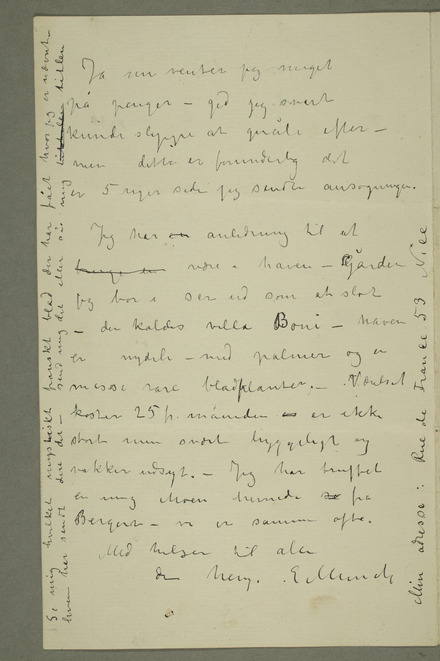 Ja nu venter jeg meget
på penger – gid jeg snart
kunde slippe at gråte efter –
men dette er forunderlig det
er 5 uger siden jeg sendte ansøgningen.
Jeg har en anledning til at
være i haven – Gården
jeg bor i ser ud som et slot
– den kaldes villa Boni – haven
er nydeli – med palmer og en
masse rare bladplanter. – Værelset
koster 25 fr. måneden er ikke
stort men svært hyggeligt og
vakker udsigt. – Jeg har truffet
en ung Moen hernede fra
Bergen – vi er sammen ofte.
Med hilsen til alle
din heng. E Munch
Min adresse: Rue de France 53 Nice
Si mig hvilket mystiskt franskt blad der har fået hvor jeg er nævnt –
hvem har sendt dere det – send mig det eller si mig titlen